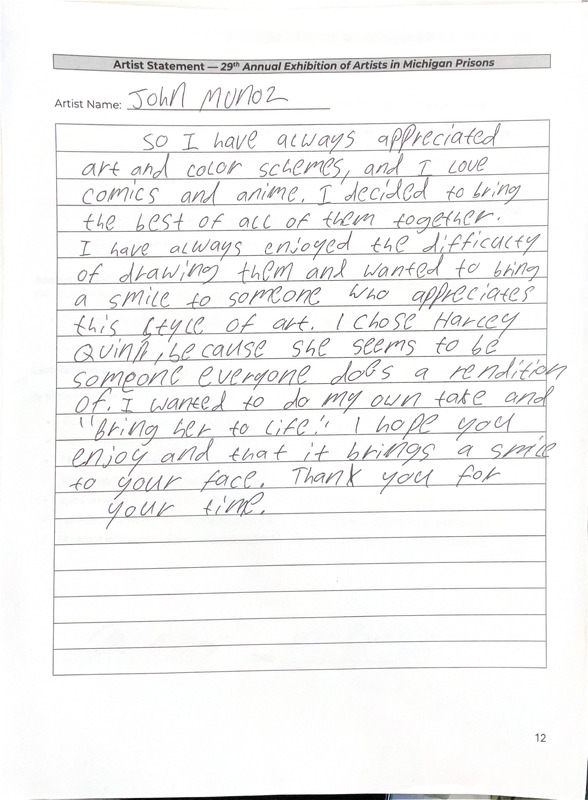 Artist Statement — 29th Annual Exhibition of Artists in Michigan Prisons
Artist Name: John Munoz
So I have always appreciated
art and color schemes, and I love
comics and anime. I decided to bring
the best of all of them together.
I have always enjoyed the difficulty
of drawing them and wanted to bring
a smile to someone who appreciates
this style of art. I chose Harley
Quinn, because she seems to be
someone everyone does a rendition
of. I wanted to do my own take and
"bring her to life". I hope you
enjoy and that it brings a smile
to your face. Thank you for
your time.
12